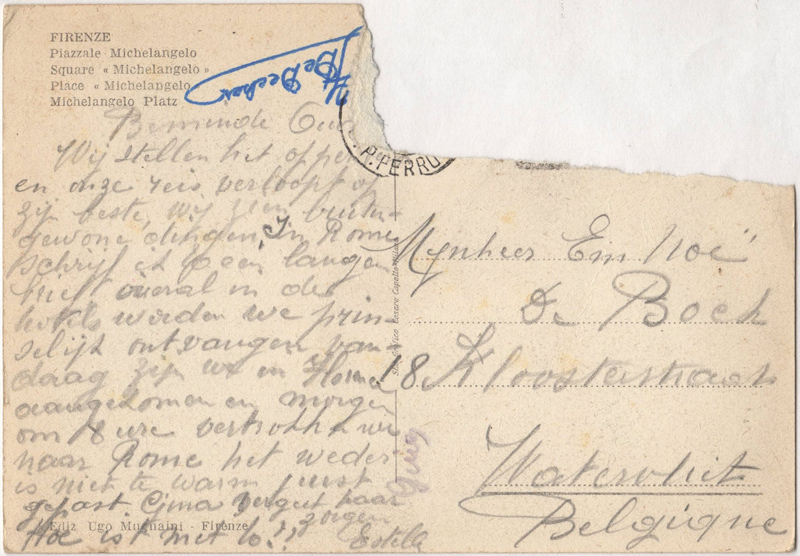 FIRENZE
Piazzale Michelangelo
Square « Michelangelo »
Place « Michelangelo
Michelangelo Platz
De Decker
Beminde
Wij stellen het opper
en onze reis verloopt op
zijn beste, wij zien buiten-
gewone dingen, In Rome
schrijf ik U een langen
brief overal in de
hotels worden we prin-
selijk ontvangen van-
daag zijn we in
aangekomen en morgen
om 8 ure vertrekken we
naar Rome het weder
is niet te warm juist
gepast. vergeet haar
zorgen
Hoe is met
Estella
Ediz Ugo Mugnaini - Firenze
R. PERRU
Mynheer Em Noë
De Bock
18 Kloosterstraat
Watervliet
Belgique